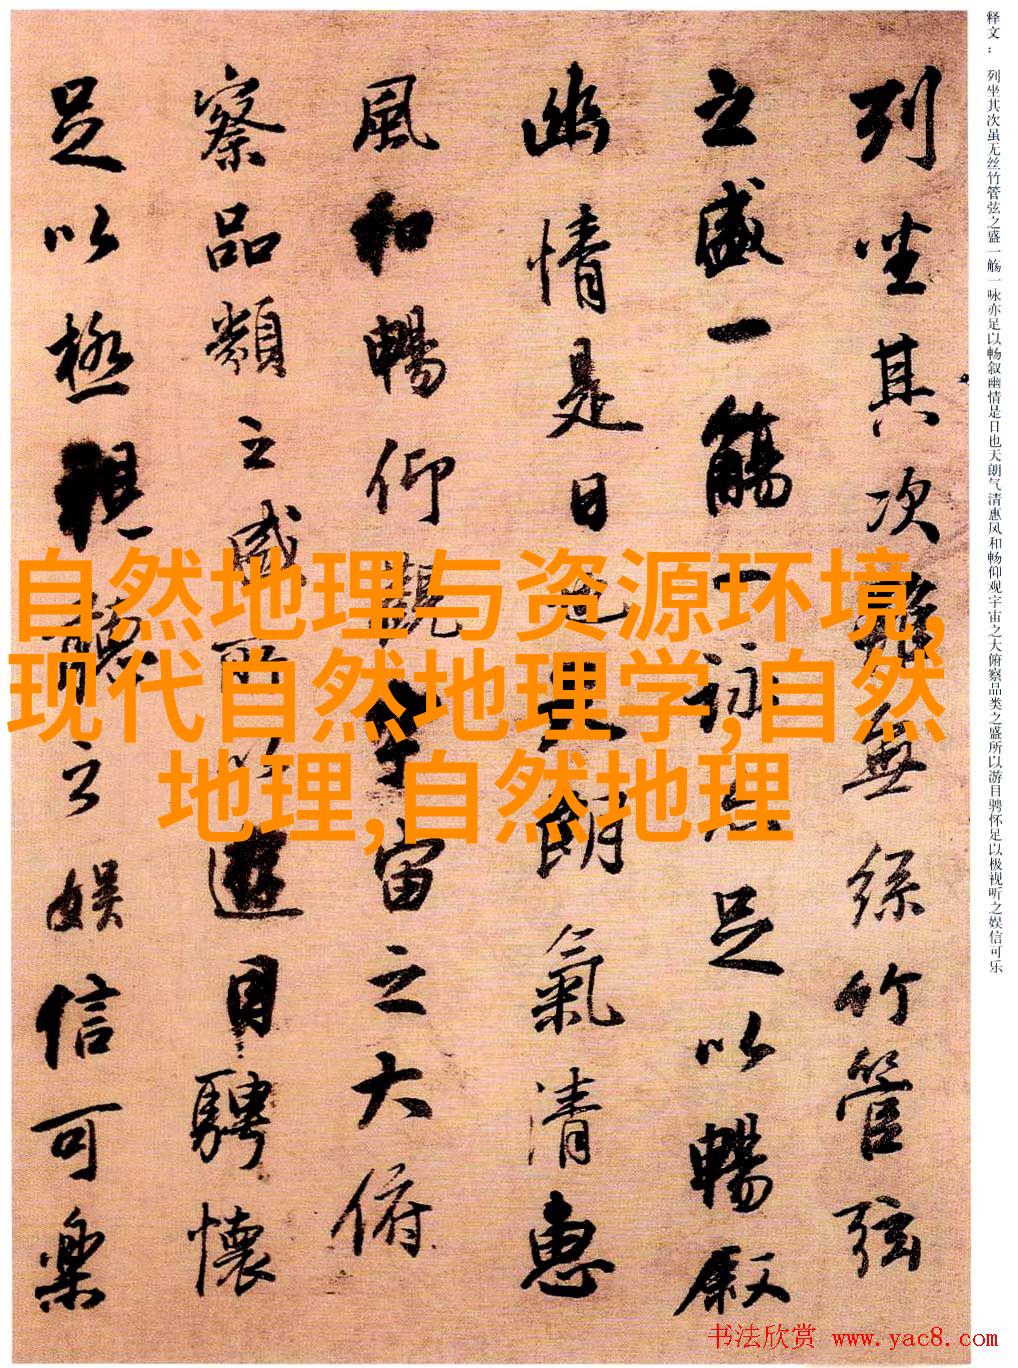 释文： 列坐其次虽无丝竹管弦之盛一觞一咏亦足以畅叙幽情是日也天朗气清惠风和畅仰观宇宙之大俯察品类之盛所以游目骋怀足以极视听之娱信可乐
列坐其次雖無絲竹管弦
之盛一觴一詠亦足以暢叙
幽情是日也天朗氣清惠
風和暢仰觀宇宙之大俯
察品類之盛所以遊目騁懷
足以極視聽之娱信可樂
自然地理与资源环境,
现代自然地理学,自然
地理,自然地理
书法欣赏 www.yac8.com